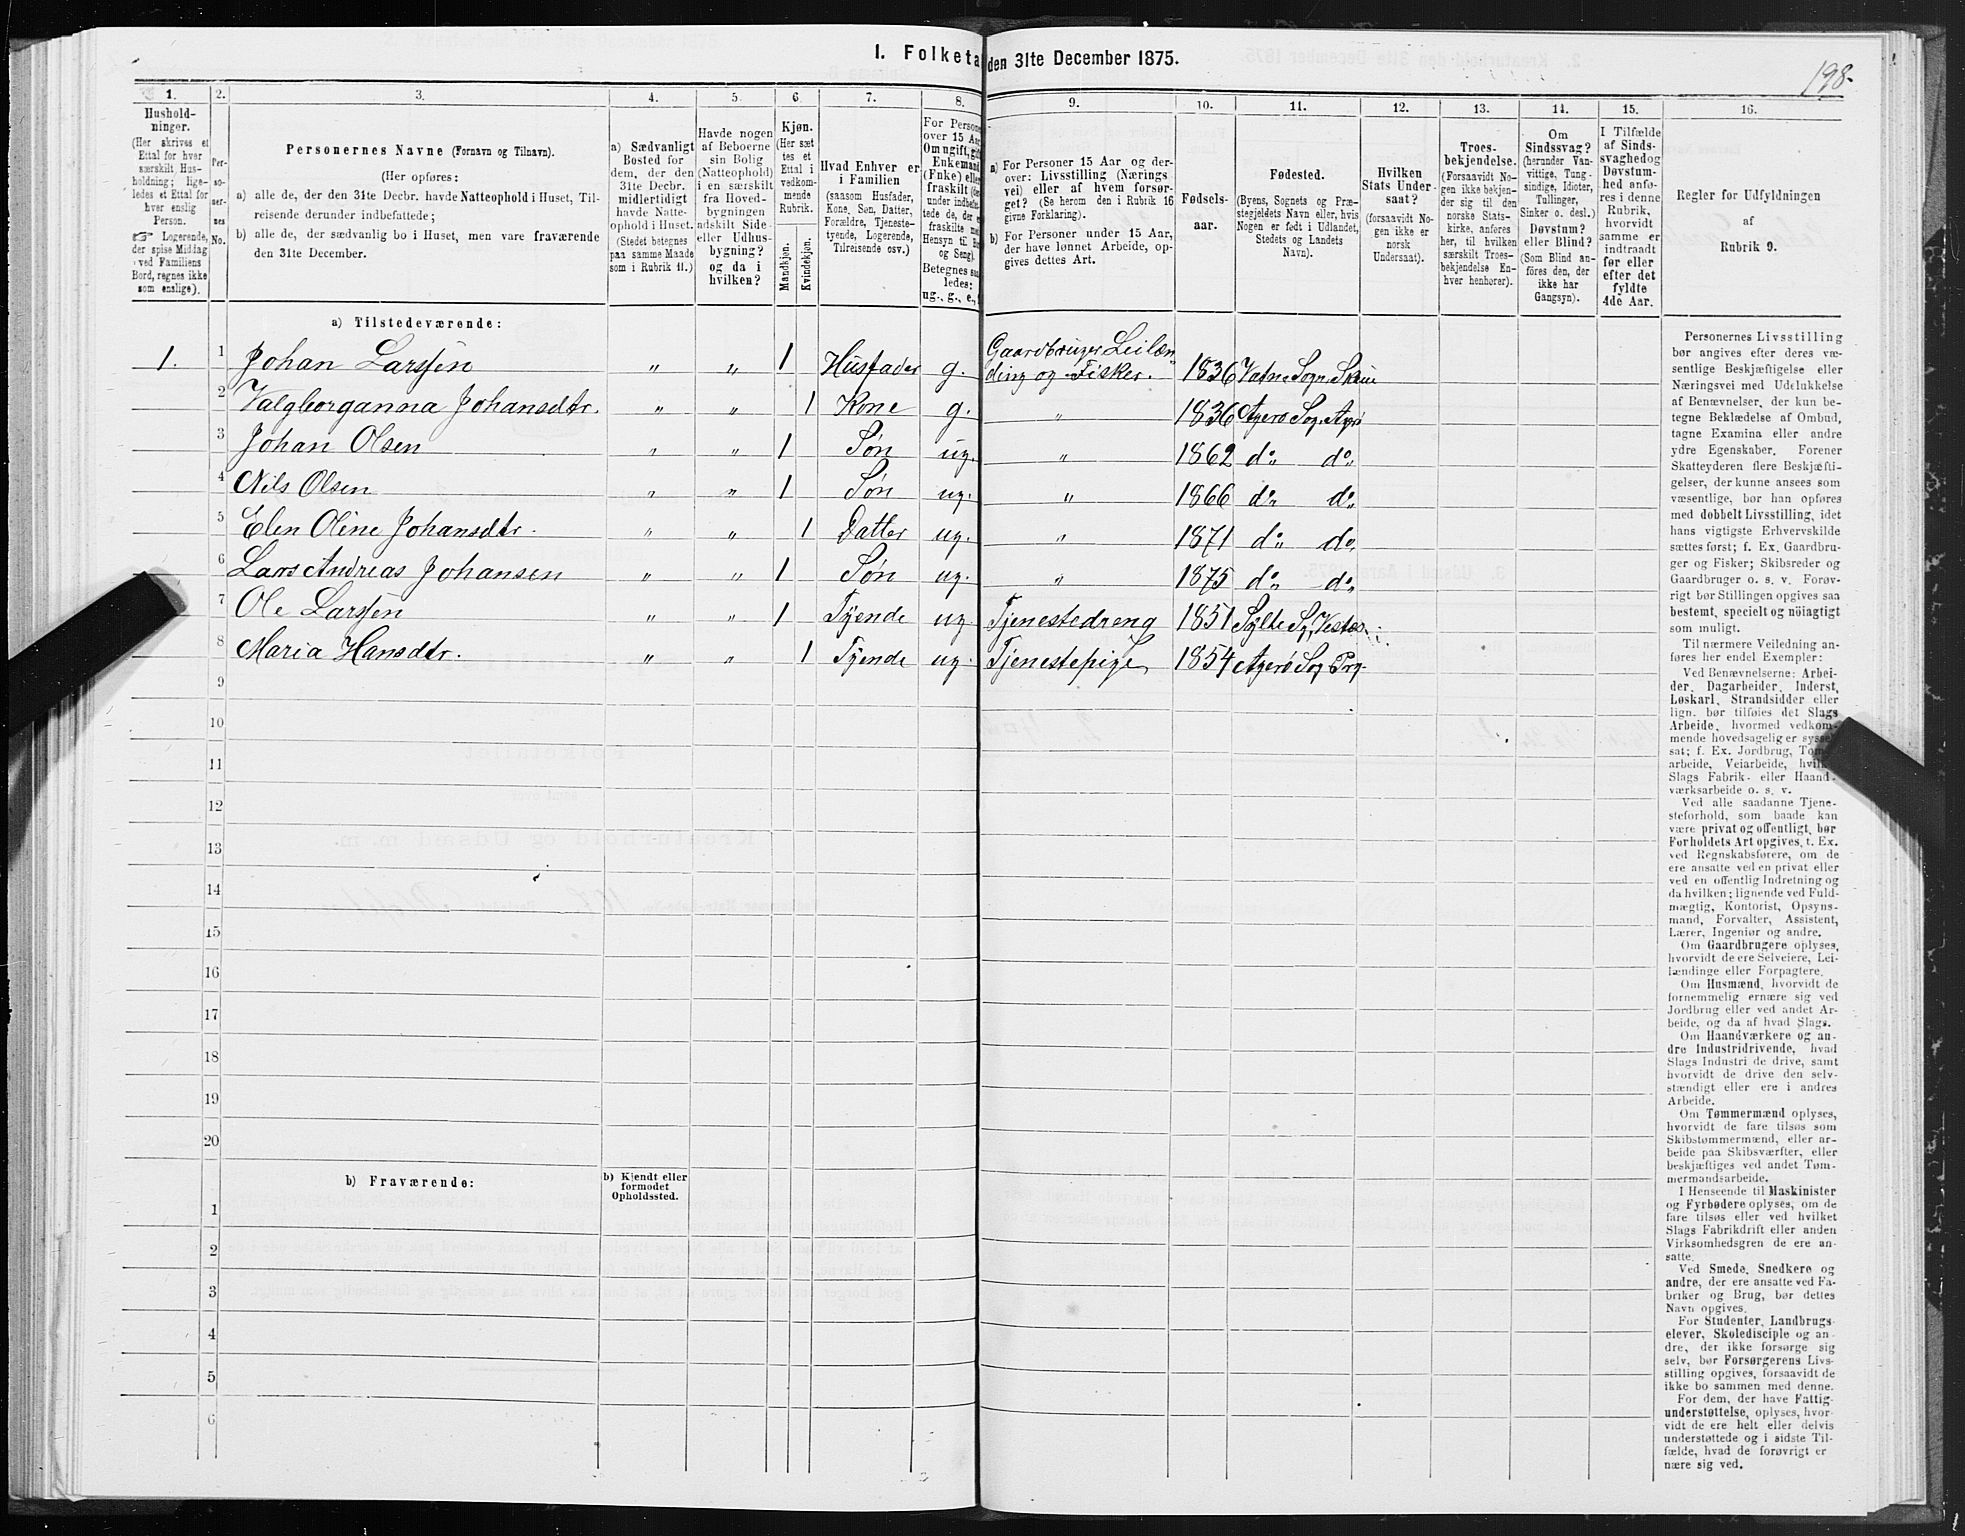 I. Folketa den 31te December 1875.
198.
1.
2.
3.
4.
5.
6.
7.
8.
9.
10.
11.
12.
13.
14.
15.
16.
Hushold-
ninger.
(Her skrives et
Ettal for hver
særskilt Hus-
holdning; lige-
ledes et Ettal for
hver enslig
Person.
☞ Logerende,
der spise Middag
ved Familiens
Bord, regnes ikke
som enslige).
Per-
so-
ner-
nes
No.
Personernes Navne (Fornavn og Tilnavn).
(Her opføres:
a) alle de, der den 31te Decbr. havde Natteophold i Huset, Til-
reisende derunder indbefattede;
b) alle de, der sædvanlig bo i Huset, men vare fraværende
den 31te December.
a) Sædvanligt
Bosted for
dem, der den
31te Decbr.
midlertidigt
havde Natte-
ophold i Huset.
(Stedet betegnes
paa samme Maade
som i Rubrik 11.)
Havde nogen
af Beboerne
sin Bolig
(Natteophold)
i en særskilt
fra Hoved-
bygningen
adskilt Side-
eller Udhus-
bygning?
og da i
hvilken?
Kjøn.
(Her sæt
tes et
Ettal i
vedkom-
mende
Rubrik.
Mandkjøn.
Kvindekjøn.
Hvad Enhver er
i Familien
(saasom Husfader,
Kone, Søn, Datter,
Forældre, Tjeneste-
tyende, Logerende,
Tilreisende osv.)
For Persone
over 15 Aar
Om ugift, gif
Enkemand
(Enke) elle
fraskilt (der
under indbefat-
tede de, de
fraskilte me
Hensyn til Bo
og Seng).
Betegnes saa
ledes:
ug., g., e., f
a) For Personer 15 Aar og der-
over: Livsstilling (Nærings
vei) eller af hvem forsør-
get? (Se herom den i Rubrik 16
givne Forklaring).
b) For Personer under 15 Aar,
der have lønnet Arbeide, op-
gives dettes Art.
Fødsels-
aar.
Fødested.
(Byens, Sognets og Præ-
stegjeldets Navn eller, hvis
Nogen er født i Udlandet,
Stedets og Landets
Navn).
Hvilken
Stats Under-
saat?
(forsaavidt No-
gen ikke er
norsk
Undersaat).
Troes-
bekjendelse.
(Forsaavidt No-
gen ikke bekjen-
der sig til den
norske Stats-
kirke, anføres
her, til hvilken
særskilt Troes-
bekjendelse En-
hver henhører).
Om
Sindssvag?
(herunder Van-
vittige, Tung-
sindige, Idioter,
Tullinger,
Sinker o. desl.)
Døvstum?
eller Blind?
(Som Blind an-
føres den, der
ikke har
Gangsyn).
I Tilfælde
af Sinds-
svaghed og
Døvstum-
hed anfø-
res i denne
Rubrik,
hvorvidt
samme er
indtraadt
før eller
efter det
fyldte
4de Aar.
Regler for Udfyldningen
af
Rubrik 9.
a) Tilstedeværende:
1. 1 Johan Larssen „ „ 1 Husfader g. Gaardbruger Leilæn
ding og Fisker. 1836 Vatne Sogn
2 Valgborganna Johansdtr. „ „ 1 Kone g. „ 1836 Agerø Sog. Agrø
3 Johan Olsen „ „ 1 Søn ug. „ 1862 do do
4 Nils Olsen „ „ 1 Søn ug. „ 1866 do do
5 Elen Oline Johansdtr. „ „ 1 Datter ug. „ 1871 do do
6 Lars Andreas Johansen „ „ 1 Søn ug. „ 1875 do do
7 Ole Larssen „ „ 1 Tyende ug. Tjenestedreng 1851 Sylte
8 Maria Hansdtr. „ „ 1 Tyende ug. Tjenestepige 1854 Agerø Sog Prg.
9
10
11
12
13
14
15
16
17
18
19
20
b) Fraværende:
b) Kjendt eller
formodet
Opholdssted.
1
2
3
4
5
6
Personernes Livsstilling
bør angives efter deres væ-
sentlige Beskjæftigelse eller
Næringsvei med Udelukkelse
af Benævnelser, der kun be-
tegne Beklædelse af Ombud,
tagne Examina eller andre
ydre Egenskaber. Forener
Skatteyderen flere Beskjæfti-
gelser, der kunne ansees som
væsentlige, bør han opføres
med dobbelt Livsstilling, idet
hans vigtigste Erhvervskilde
sættes først; f. Ex. Gaardbru-
ger og Fisker; Skibsreder og
Gaardbruger o. s. v. Forøv-
rigt bør Stillingen opgives saa
bestemt, specielt og nöiagtigt
som muligt.
Til nærmere Veiledning an-
føres her endel Exempler:
Ved Benævnelserne: Arbei-
der, Dagarbeider, Inderst,
Løskarl, Strandsidder eller
lign. bør tilføies det Slags
Arbeide, hvormed vedkom-
mende hovedsagelig er syssel
sat; f. Ex. Jordbrug, Tom
arbeide, Veiarbeide, hvilk
Slags Fabrik- eller Haand-
værksarbeide o. s. v.
Ved alle saadanne Tjene-
steforhold, som baade kan
være privat og offentligt, bør
Forholdets Art opgives, t. Ex.
ved Regnskabsførere, om de
ere ansatte ved en privat eller
ved en offentlig Indretning og
da hvilken; lignende ved Fuld-
mægtig, Kontorist, Opsyns-
mand, Forvalter, Assistent,
Lærer, Ingeniør og andre.
Om Gaardbrugere oplyses,
hvorvidt de ere Selveiere, Lei-
lændinge eller Forpagtere.
Om Husmænd, hvorvidt de
fornemmelig ernære sig ved
Jordbrug eller ved andet Ar-
beide, og da af hvad Slags.
Om Haandværkere og an-
dre Industridrivende, hvad
Slags Industri de drive, samt
hvorvidt de drive den selv-
stændigt eller ere i andres
Arbeide.
Om Tømmermænd oplyses,
hvorvidt de fare tilsøs som
Skibstømmermænd, eller ar-
beide paa Skibsværfter, eller
beskjæftiges ved andet Tøm-
mermandsarbeide.
I Henseende til Maskinister
og Fyrbødere oplyses, om de
fare tilsøs eller ved hvilket
Slags Fabrikdrift eller anden
Virksomhedsgren de ere an-
satte.
Ved Smede, Snedkere og
andre, der ere ansatte ved Fa-
briker og Brug, bør dettes
Navn opgives.
For Studenter, Landbrugs-
elever, Skoledisciple og an-
dre, der ikke forsørge sig
selv, bør Forsørgerens Livs-
stilling opgives, forsaavidt de
ikke bo sammen med denne.
For dem, der have Fattig-
understøttelse, oplyses, hvor-
vidt de ere helt eller delvis
understøttede og i sidste Til-
fælde, hvad de forøvrigt er
nære sig ved.